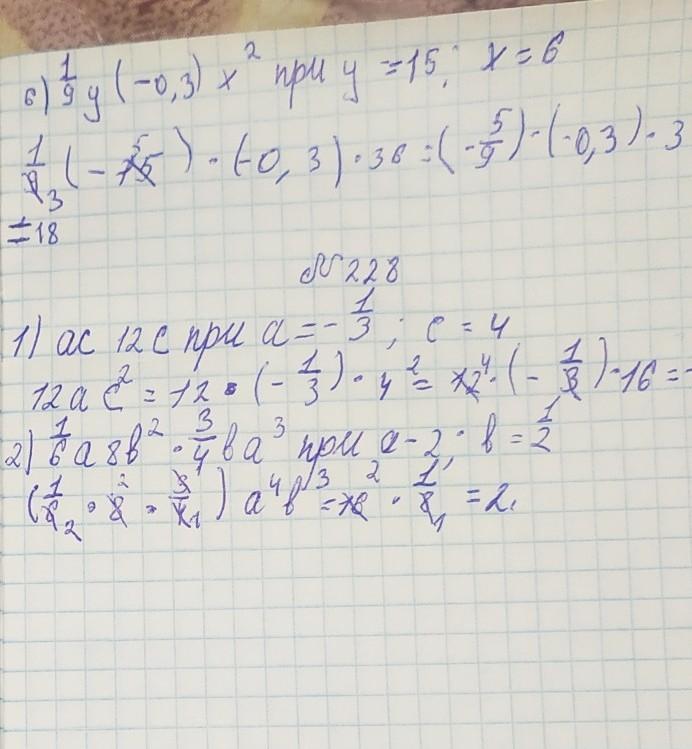 6) 1/9 y (-0,3) x² при y = 15; x = 6
1/9 3 (- 15 5) · (-0, 3) · 36 = (- 5/9) · (-0,3) · 3
= 18
№228
1) ac 12c при a = - 1/3; c = 4
12ac² = 12 · (- 1/3) · 4² = 12 4 · (- 1/3) · 16 = -
2) 1/6 a8b² · 3/4 ba³ при a - 2; b = 1/2
(1/6 2 · 8 2 · 3 1/4 1) a⁴b³ = 16 2 · 1/8 1 = 2.